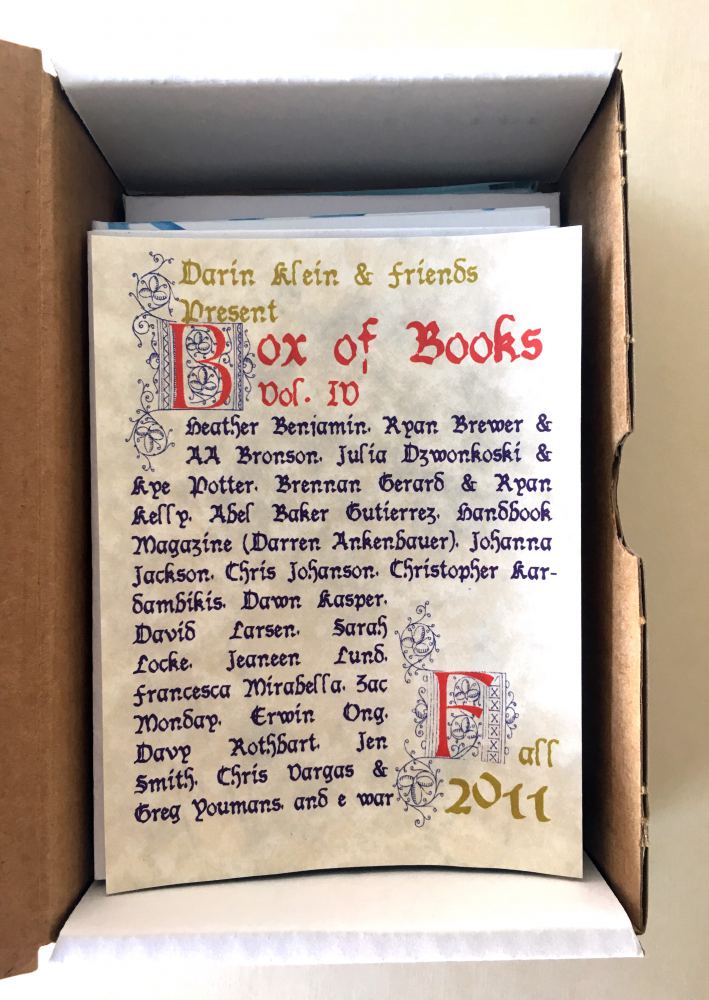 Darin Klein & friends
Present
Box of Books
Vol. IV
Heather Benjamin. Ryan Brewer &
AA Bronson. Julia Dzwonkoski &
Kye Potter. Brennan Gerard & Ryan
Kelly. Abel Baker Gutierrez. Handbook
Magazine (Darren Ankenbauer). Johanna
Jackson. Chris Johanson. Christopher Kar-
dambikis. Dawn Kasper.
David Larsen. Sarah
Locke. Jeaneen Lund.
Francesca Mirabella. Zac
Monday. Erwin Ong.
Davy Rothbart. Jen
Smith. Chris Vargas &
Greg Youmans. and e war
Fall
2011